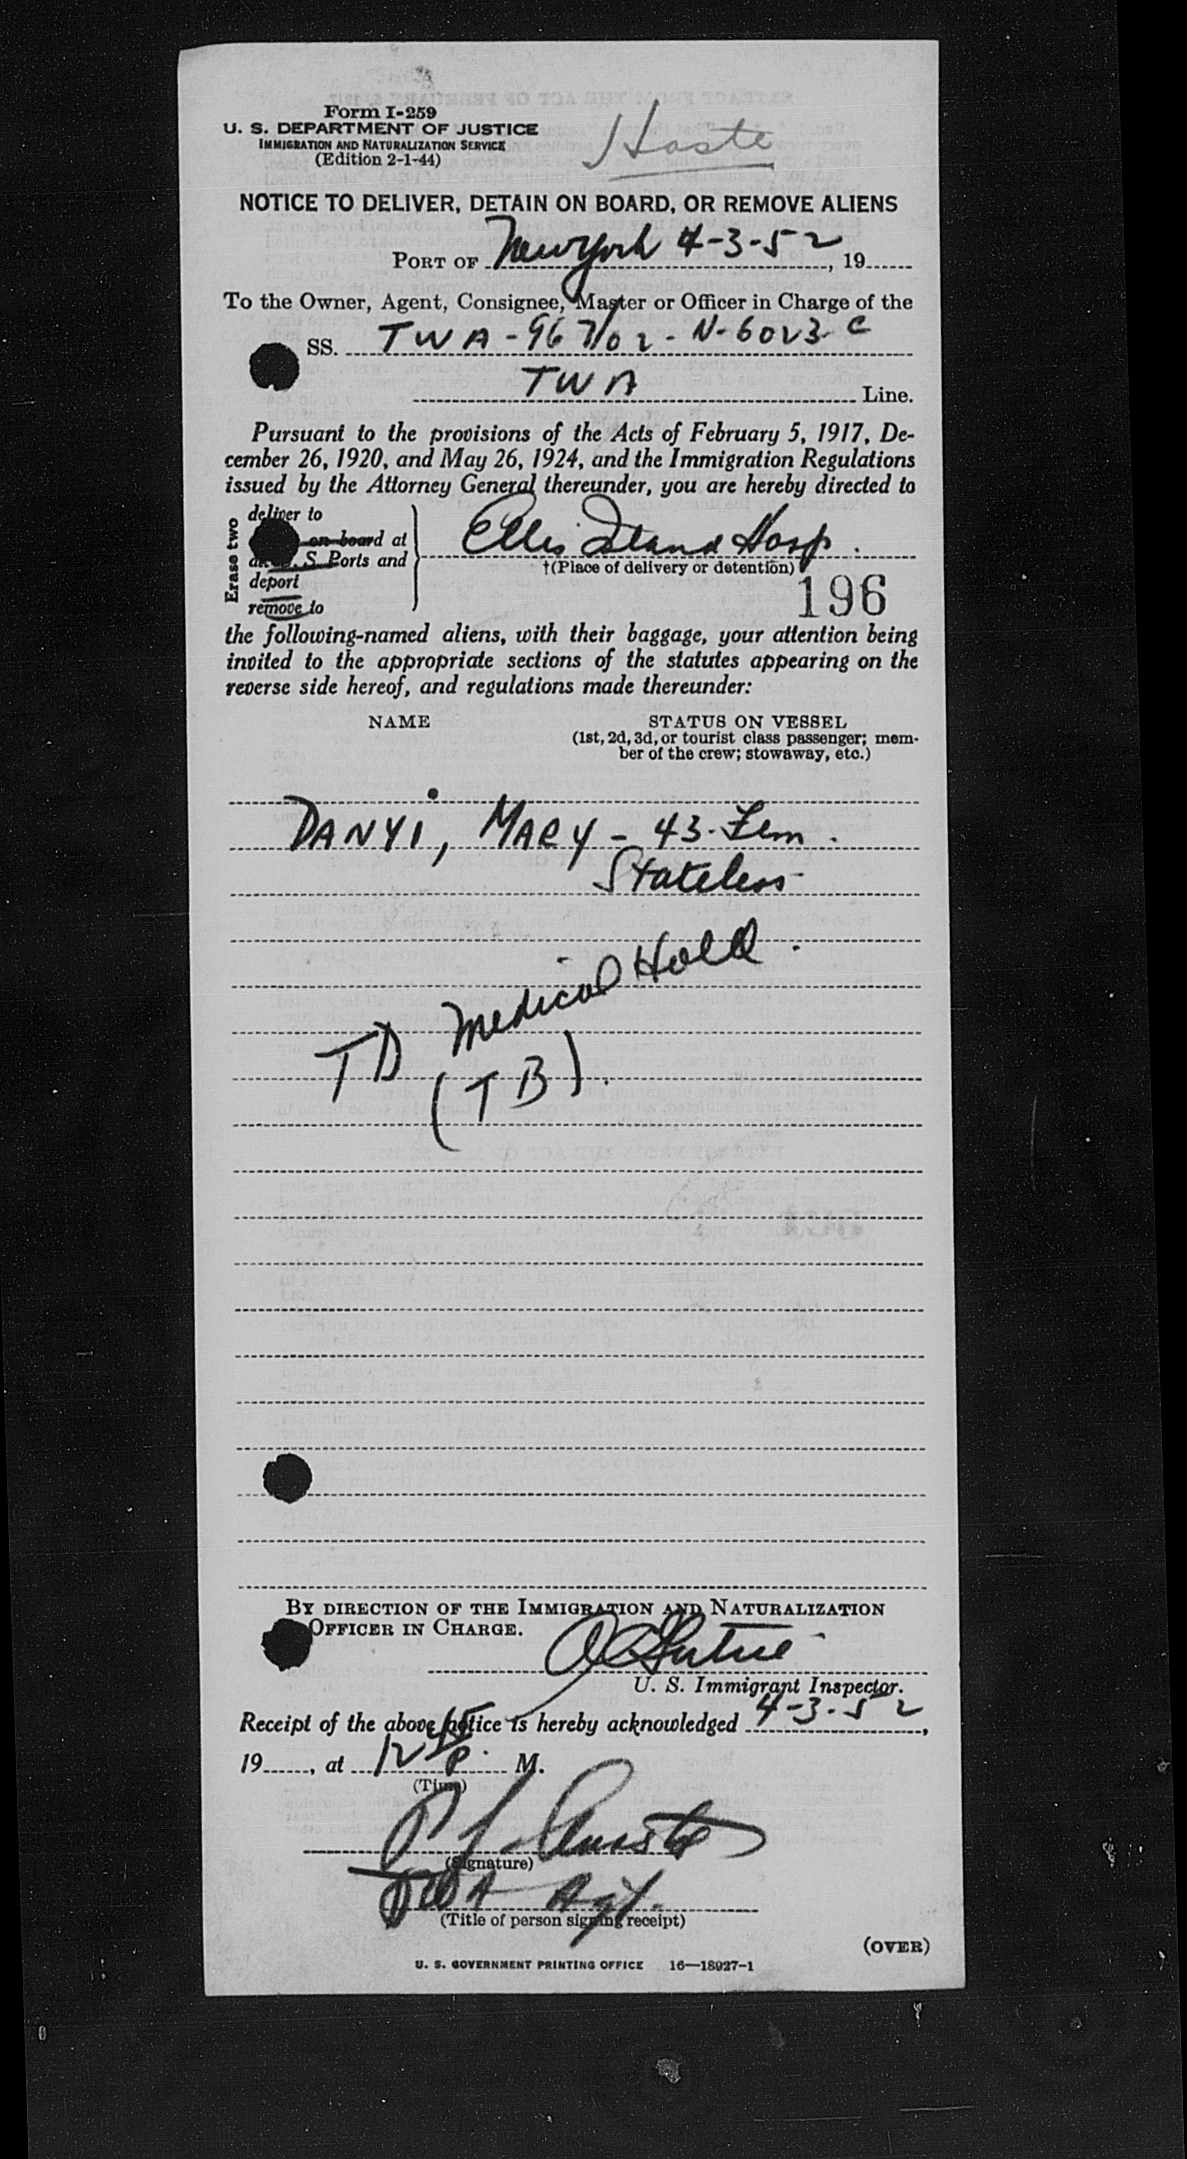 Form I-259
U. S. DEPARTMENT OF JUSTICE
IMMIGRATION AND NATURALIZATION SERVICE
(Edition 2-1-44)
Haste
NOTICE TO DELIVER, DETAIN ON BOARD, OR REMOVE ALIENS
PORT OF New York 4-3-52, 19
To the Owner, Agent, Consignee, Master or Officer in Charge of the
SS. TWA-967/02-N-6023-C
TWA Line.
Pursuant to the provisions of the Acts of February 5, 1917, De-
cember 26, 1920, and May 26, 1924, and the Immigration Regulations
issued by the Attorney General thereunder, you are hereby directed to
Erase two
deliver to
on board at
S. Ports and
deport
remove to
Ellis Island Hosp.
†(Place of delivery or detention)
196
the following-named aliens, with their baggage, your attention being
invited to the appropriate sections of the statutes appearing on the
reverse side hereof, and regulations made thereunder:
NAME STATUS ON VESSEL
(1st, 2d, 3d, or tourist class passenger; mem-
ber of the crew; stowaway, etc.)
DANYI, MARY - 43. Fem.
Stateless
Medical Hold.
TD (TB).
BY DIRECTION OF THE IMMIGRATION AND NATURALIZATION
OFFICER IN CHARGE.
U. S. Immigrant Inspector.
Receipt of the above notice is hereby acknowledged 4-3-52,
19, at 12 45 P. M.
(Time)
(Signature)
TWA Agt.
(Title of person signing receipt)
(OVER)
U. S. GOVERNMENT PRINTING OFFICE 16—18927-1